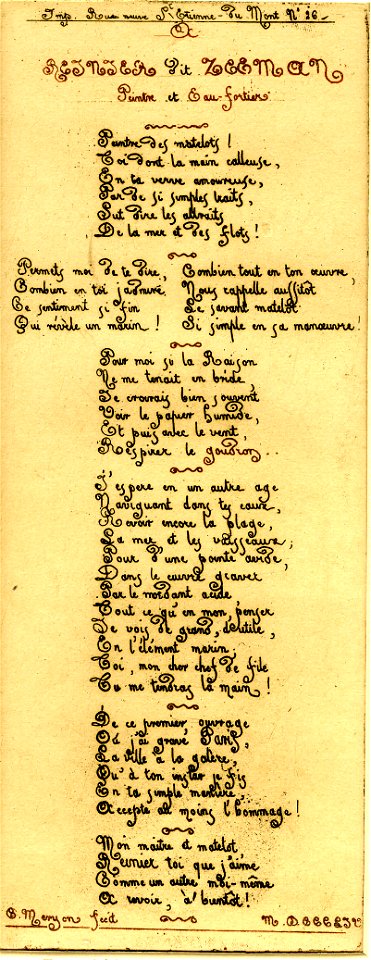 Imp. Rue neuve St Etienne-du Mont No 26.
A
REINIER dit ZEEMAN
Peintre et Eau-fortier.
Peintre des matelots !
Toi dont la main calleuse,
En ta verve amoureuse,
Par de si simples traits,
Sut dire les attraits
De la mer et des flots !
Permets moi de te dire,
Combien en toi j'admire
Ce sentiment si fin
Qui révèle un marin !
Combien tout en ton œuvre,
Nous rappelle aussitot
Le savant matelot
Si simple en sa manœuvre !
Pour moi si la Raison
Ne me tenait en bride,
Je croirais bien souvent
Voir le papier humide,
Et puis avec le vent,
Respirer le goudron..
J'espere en un autre age
Naviguant dans tes eaux,
Revoir encore la plage,
La mer et les vaisseaux ;
Pour d'une pointe avide,
Dans le cuivre graver
Par le mordant acide
Tout ce qu'en mon penser
Je vois de grand, d'utile,
En l'élément marin ;
Toi, mon cher chef de file
Tu me tendras la main !
De ce premier ouvrage
Où j'ai gravé Paris,
La ville à la galère,
Qu'à ton instar je fis
En ta simple manière,
Accepte au moins l'hommage !
Mon maitre et matelot
Reinier toi que j'aime
Comme un autre moi-même
A revoir, à bientot !
C. Meryon fecit
M. DCCCLIV